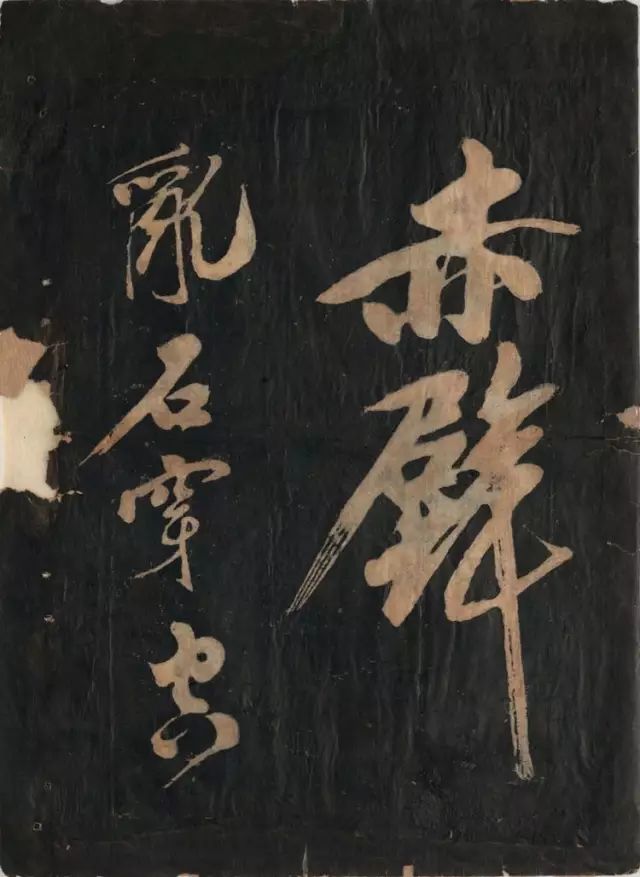 赤壁
亂石穿空